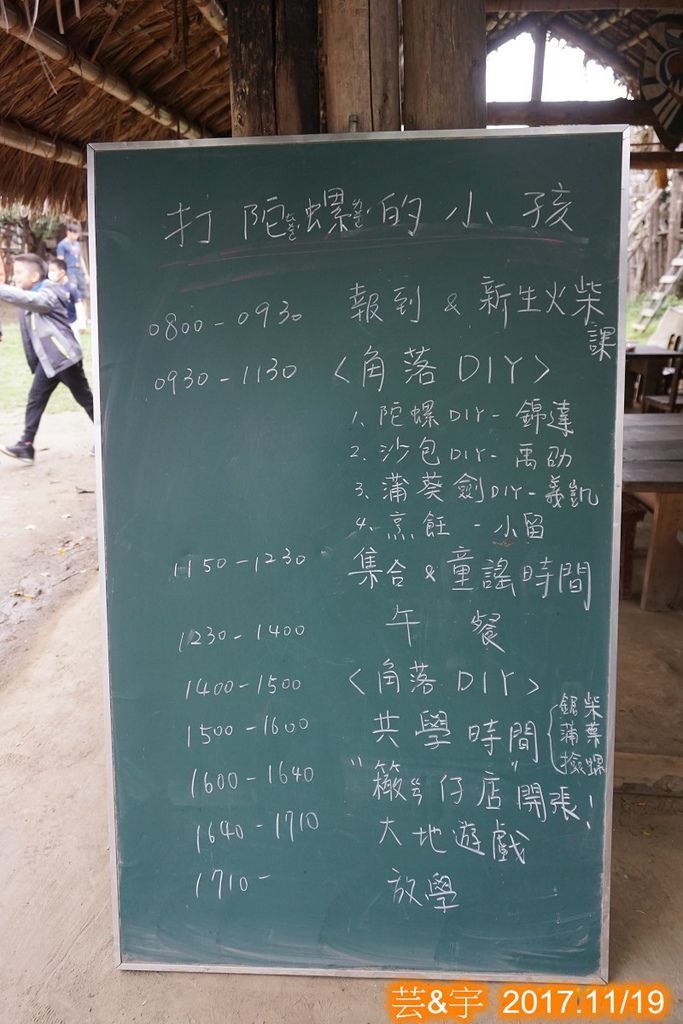 打陀螺的小孩
0800-0930 報到 & 新生火柴課
0930-1130 <角落 DIY>
1. 陀螺DIY- 錦達
2. 沙包DIY- 禹劭
3. 蒲葵劍DIY- 義凱
4. 烹飪 - 小留
1150-1230 集合 & 童謠時間
1230-1400 午餐
1400-1500 <角落 DIY>
1500-1600 共學時間
鋸柴
蒲葉
撿螺
1600-1640 "籤ㄍㄢ仔店"開張!
1640-1710 大地遊戲
1710- 放學
芸&宇 2017.11/19